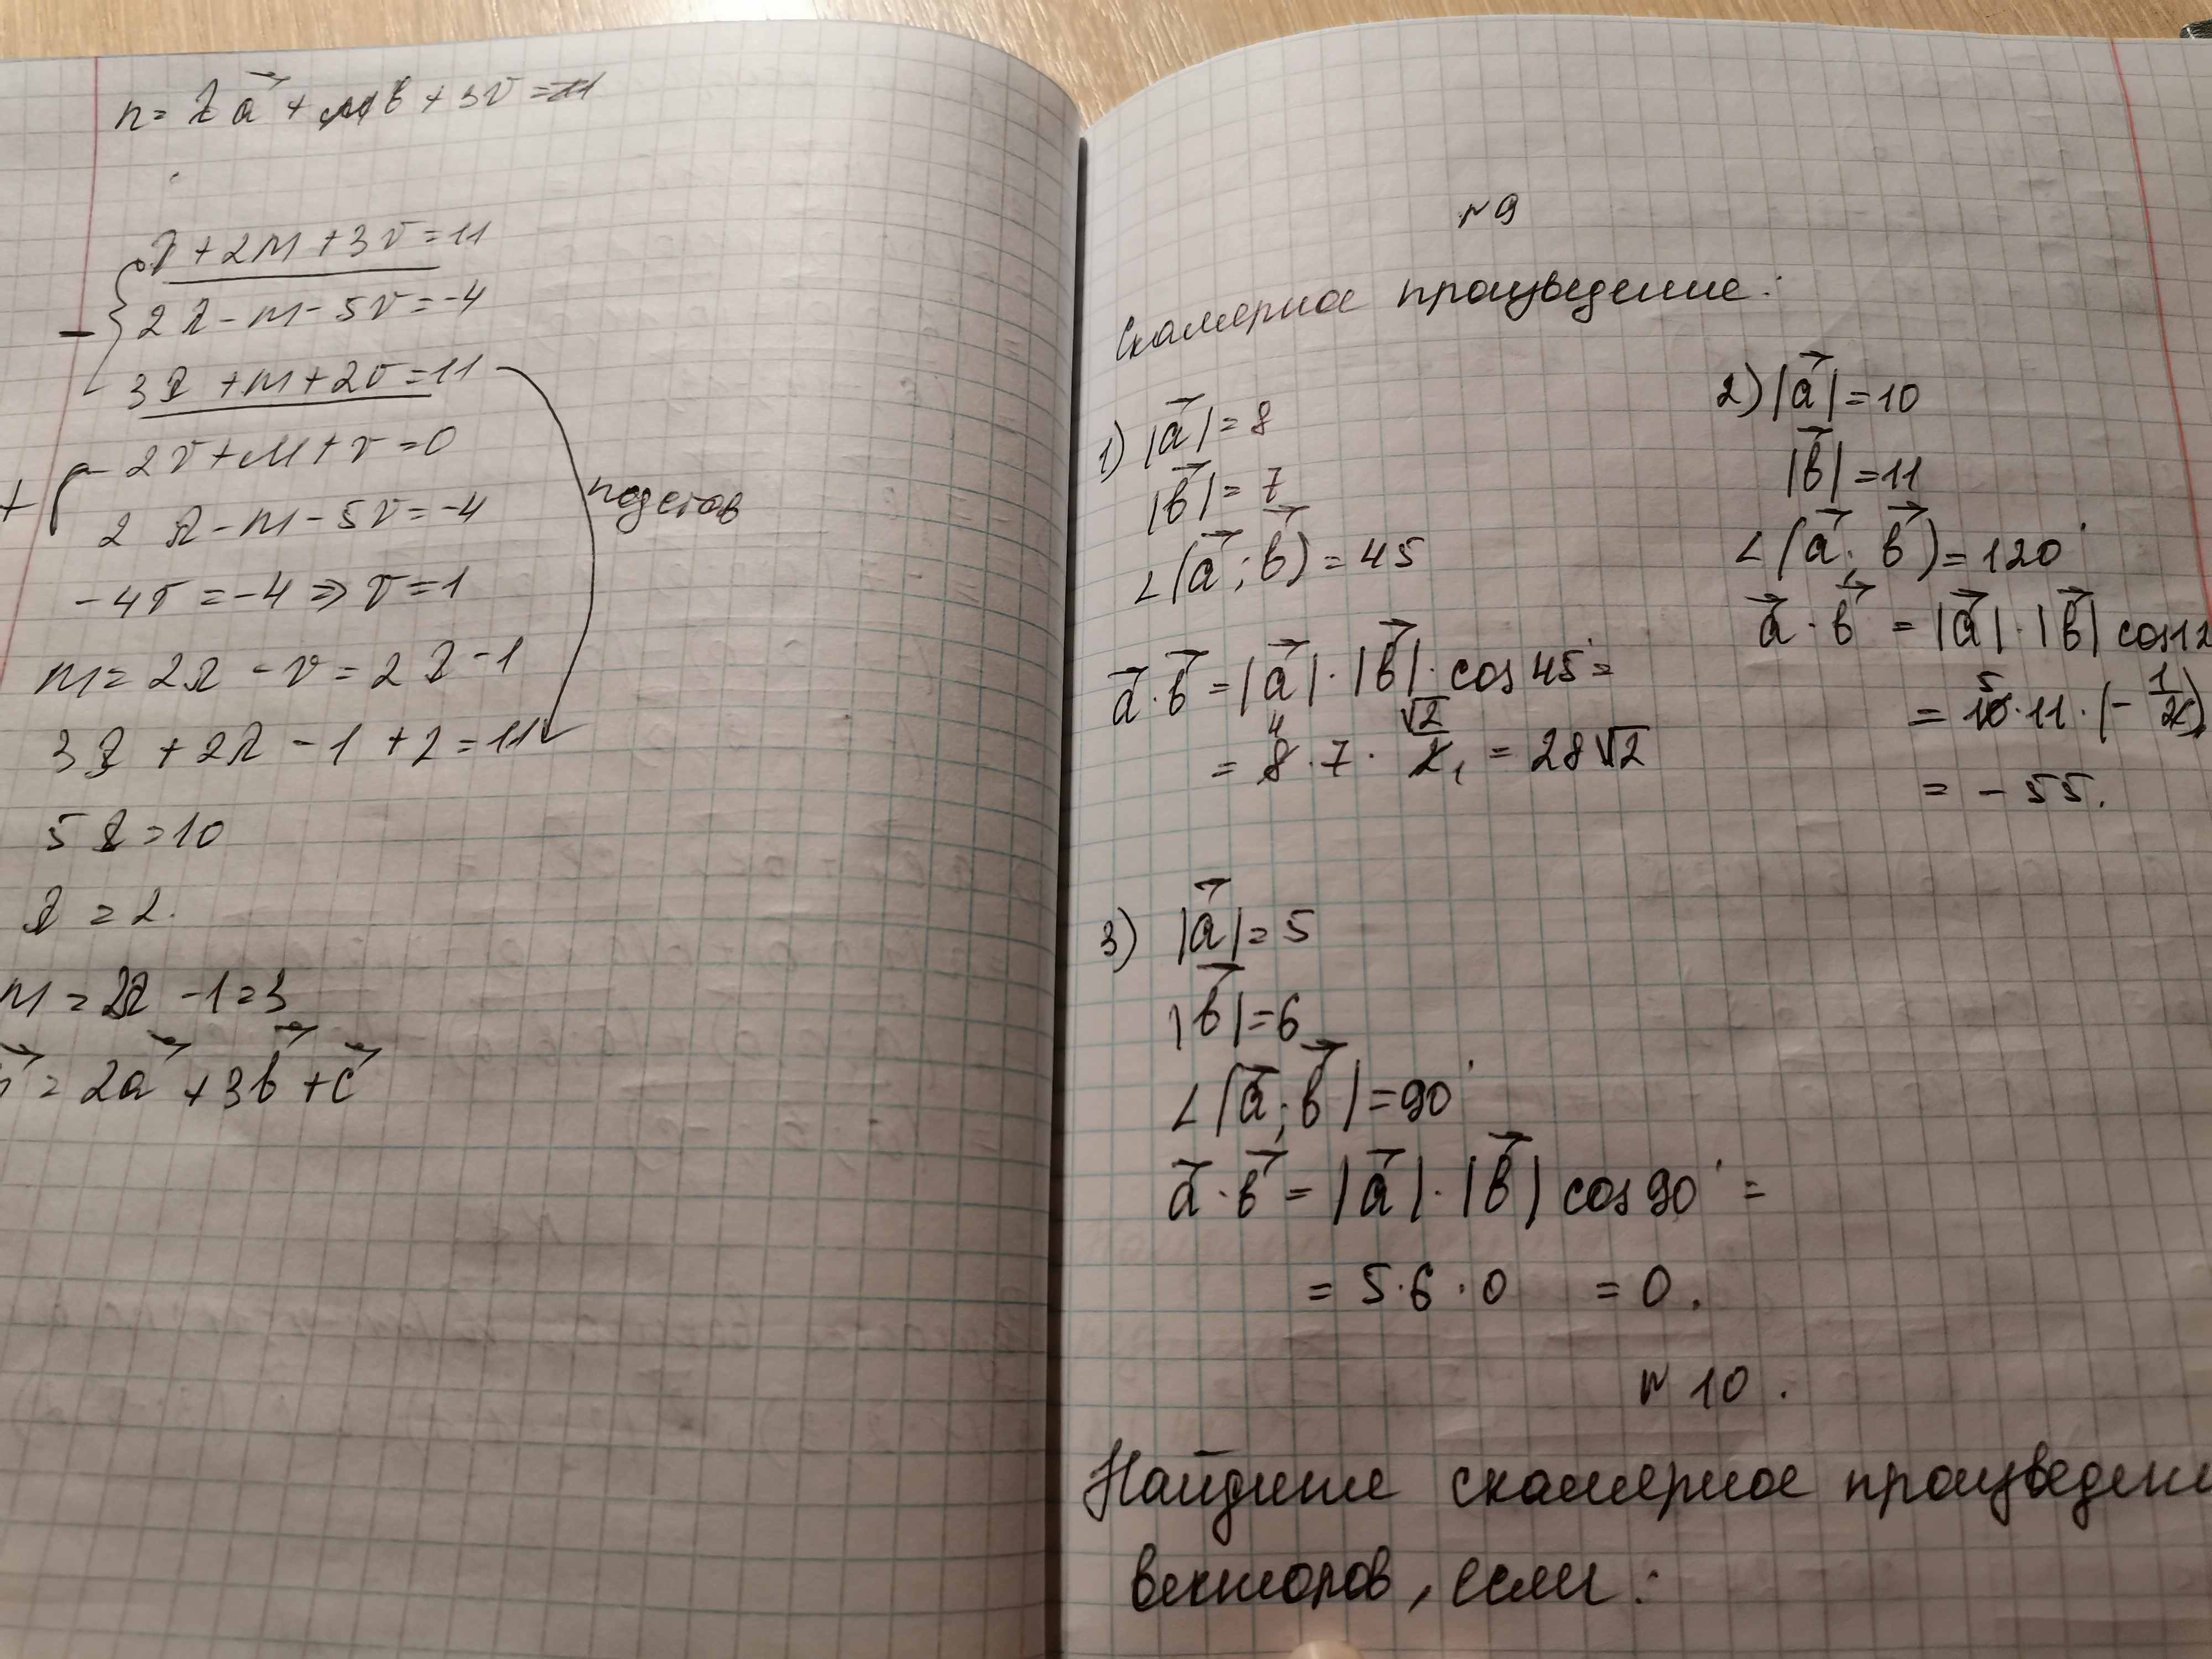 n = λa⃗ + μb + 3v = 11
λ + 2m + 3v = 11
2λ - m - 5v = -4
3λ + m + 2v = 11
2v + m + v = 0
2λ - m - 5v = -4
подстав
-4v = -4 ⇒ v = 1
m = 2λ - v = 2λ - 1
3λ + 2λ - 1 + 2 = 11
5λ = 10
λ = 2.
m = 2λ - 1 = 3
= 2a⃗ + 3b⃗ + c⃗
№ 9
Скалярное произведение:
1) |a⃗| = 8
|b⃗| = 7
∠(a⃗; b⃗) = 45
a⃗ · b⃗ = |a⃗| · |b⃗| · cos 45° =
= 8 · 7 · √2/2 = 28√2
2) |a⃗| = 10
|b⃗| = 11
∠(a⃗; b⃗) = 120°
a⃗ · b⃗ = |a⃗| · |b⃗| cos 12
= 10 · 11 · (-1/2)
= -55.
3) |a⃗| = 5
|b⃗| = 6
∠(a⃗; b⃗) = 90°
a⃗ · b⃗ = |a⃗| · |b⃗| cos 90° =
= 5 · 6 · 0 = 0.
№ 10.
Найдите скалярное произведени
векторов, если: